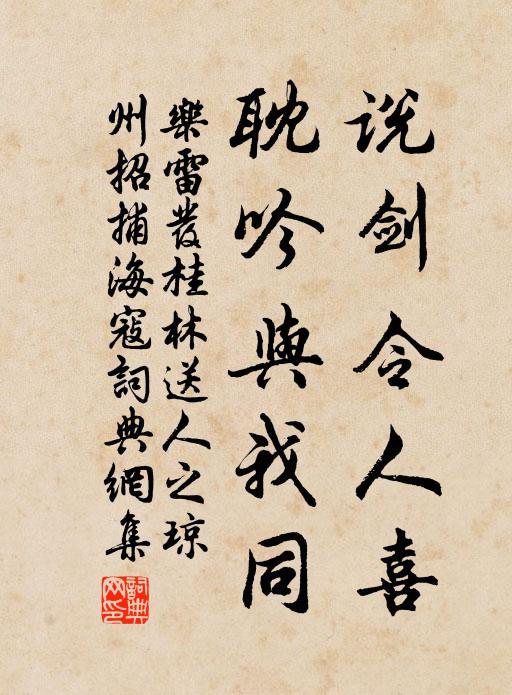 说剑令人喜
耽吟與我同
樂雷發桂林送人之琼
州招捕海寇詞典網集
詞典
网印